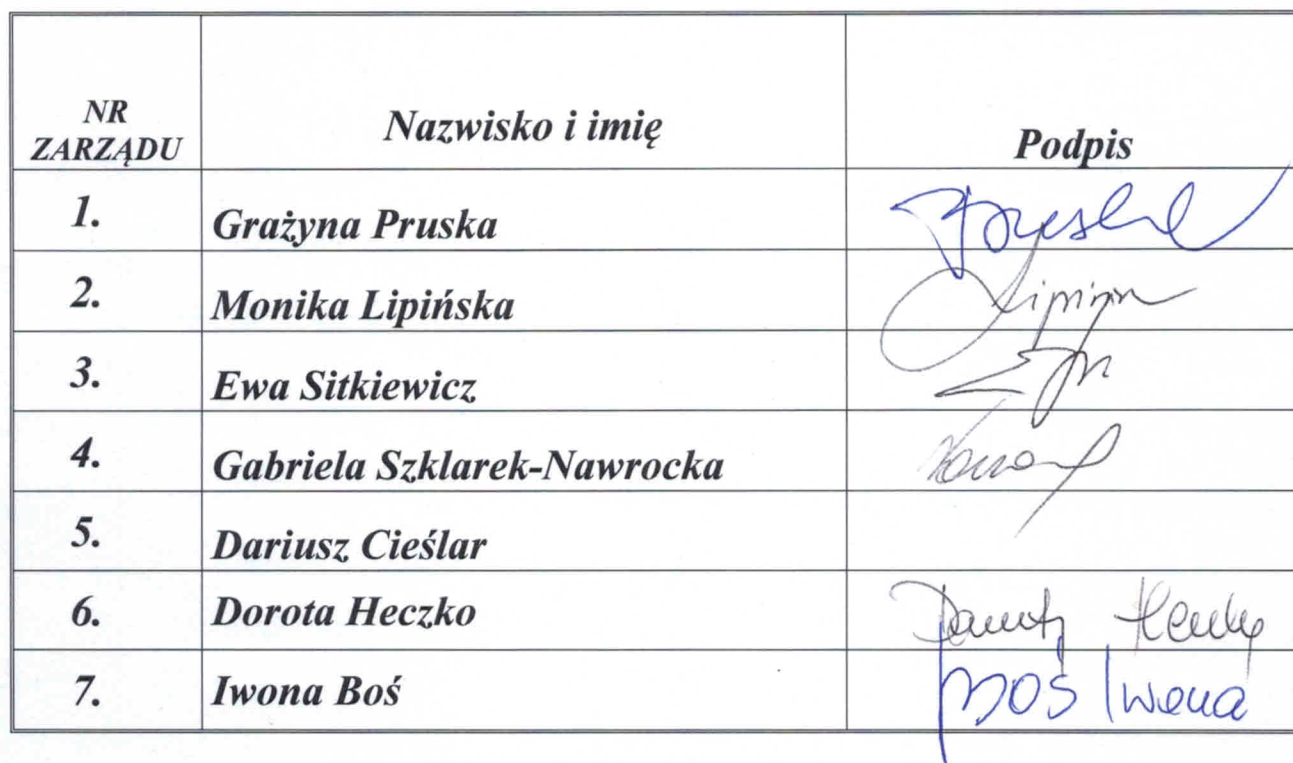 NR ZARZĄDU Nazwisko i imię Podpis
1. Grażyna Pruska
2. Monika Lipińska
3. Ewa Sitkiewicz
4. Gabriela Szklarek-Nawrocka
5. Dariusz Cieślar
6. Dorota Heczko
7. Iwona Boś Boś Iwona